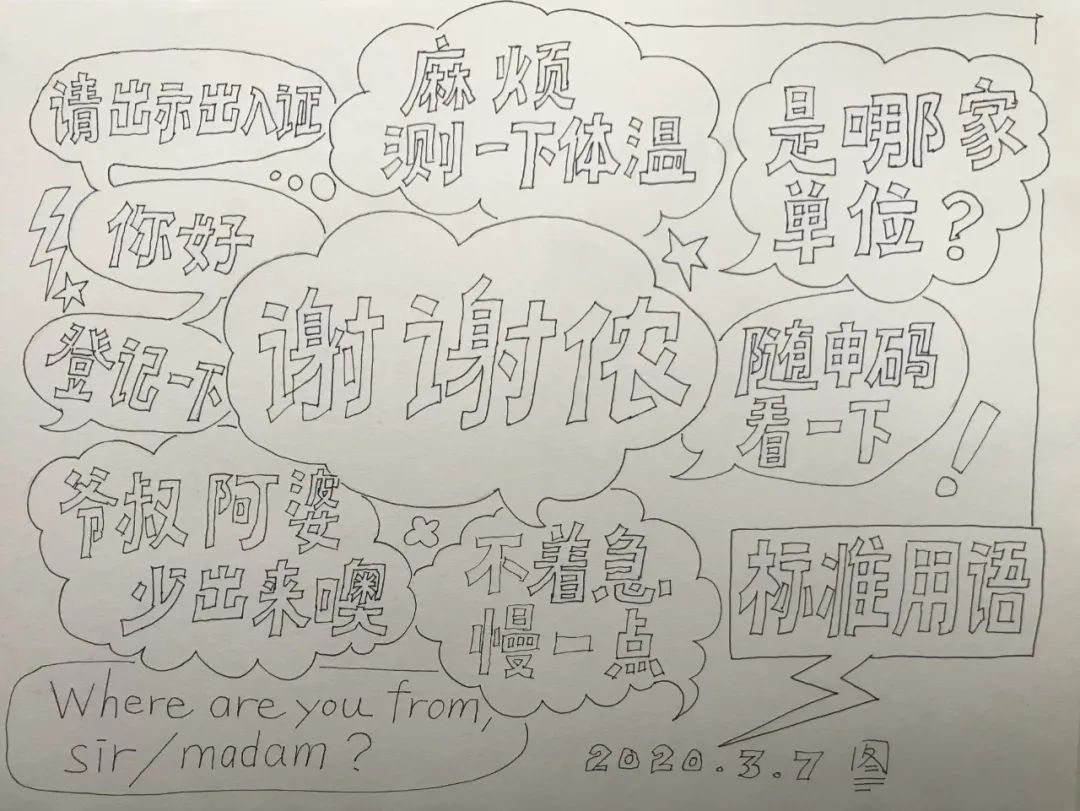 请出示出入证
麻烦
测一下体温
是哪家
單位？
你好
谢谢侬
登记一下
随申码
看一下
爷叔阿婆
少出来噢
不着急.
慢一点
标准用语
Where are you from,
sir/madam?
2020.3.7 图